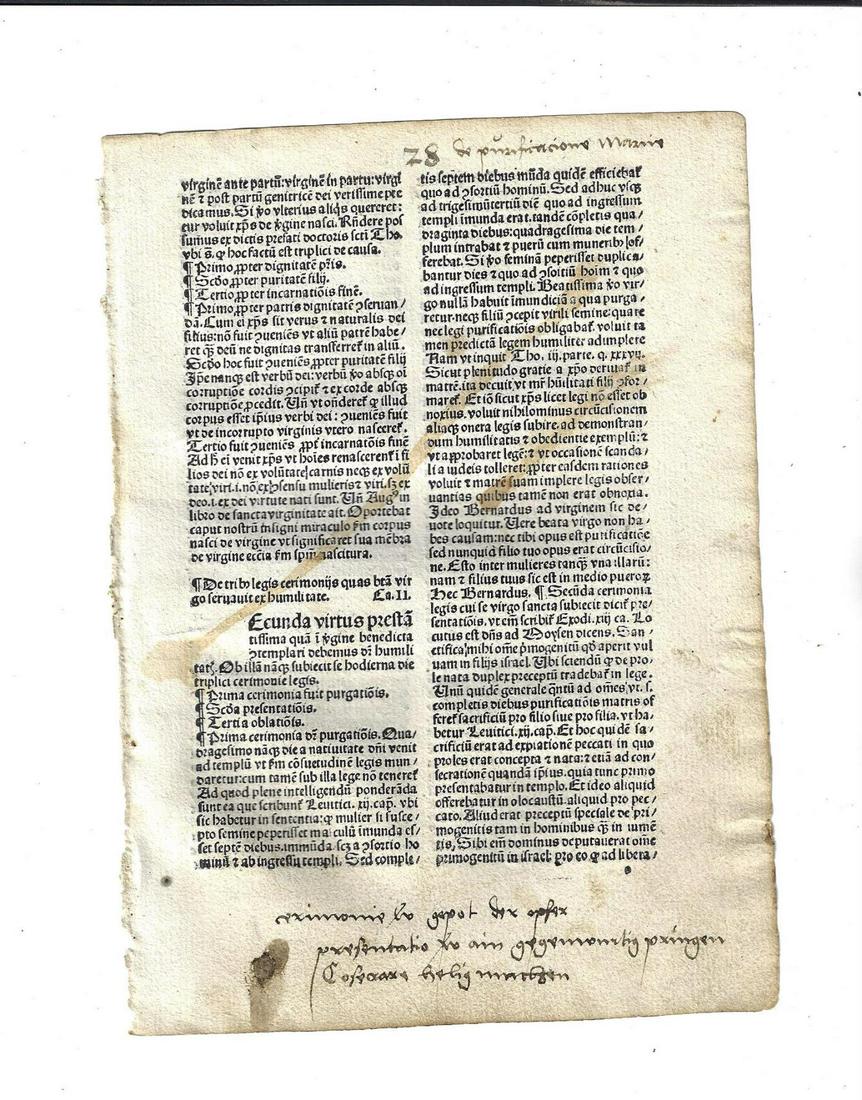 28 de purificacione Marie
virginē ante partū: virginē in partu: virgi
nē & post partū genitricē dei verissime pre
dicamus. Si ꝟo vlterius aliq̇s quereret:
cur voluit xp̄s de ꝟgine nasci. Rn̄dere pos
sumus ex dictis prefati doctoris scti Tho.
vbi s. ꝙ hoc factū est triplici de causa.
¶ Primo ꝓpter dignitatē pr̄is.
¶ Scdo ꝓpter puritatē filij.
¶ Tertio ꝓpter incarnatiōis finē.
¶ Primo ꝓpter patris dignitatē ꝯseruan/
dā. Cum ei xp̄s sit verus & naturalis dei
filius: nō fuit ꝯueniēs vt aliū patrē habe/
ret q̄ȝ deū ne dignitas transferret̉ in aliū.
Scdo hoc fuit ꝯueniēs ꝓpter puritatē filij
Ip̄e nanqȝ est verbū dei: verbū ꝟo absqȝ oī
corruptiōe cordis ꝯcipit̉ & ex corde absqȝ
corruptiōe ꝓcedit. Un̄ vt on̄deret̉ ꝙ illud
corpus esset ip̄ius verbi dei: ꝯueniēs fuit
vt de incorrupto virginis vtero nasceret̉.
Tertio fuit ꝯueniēs ꝓpt̉ incarnatiōis finē
Ad h̄ ei venit xp̄s vt hoīes renascerent̉ ī fi
lios dei nō ex volūtate carnis neqȝ ex volū
tate viri. i. nō ex ꝯsensu mulieris & viri. sȝ ex
deo. i. ex dei virtute nati sunt. Un̄ Aug⁹ in
libro de sancta virginitate ait. Oportebat
caput nostrū īsigni miraculo ẜm corpus
nasci de virgine vt significaret sua mēbra
de virgine ecc̄ia ẜm spm̄ nascitura.
¶ De trib⁹ legis cerimonijs quas btā vir
go seruauit ex humilitate. Ca. II.
Ecunda virtus prestā
tissima quā ī ꝟgine benedicta
ꝯtemplari debemus dr̄ humili
tas. Ob illā nāqȝ subiecit se hodierna die
triplici cerimonie legis.
¶ Prima cerimonia fuit purgatiōis.
¶ Scda presentatiōis.
¶ Tertia oblatiōis.
¶ Prima cerimonia dr̄ purgatiōis. Qua/
dragesimo nāqȝ die a natiuitate dn̄i venit
ad templū vt ẜm cōsuetudinē legis mun/
daretur: cum tamē sub illa lege nō teneret̉
Ad quod plene intelligendū ponderāda
sunt ea que scribunt̉ Leuitici. xij. cap̄. vbi
sic habetur in sententia: ꝙ mulier si susce/
pto semine pepererit masculū imunda es/
set septē diebus. immūda scȝ a ꝯsortio ho
minū & ab ingressu templi. Sed comple/
tis septem diebus mūda quidē efficiebat̉
quo ad ꝯsortiū hominū. Sed adhuc vsqȝ
ad trigesimūtertiū diē quo ad ingressum
templi imunda erat. tandē cōpletis qua/
draginta diebus: quadragesima die tem/
plum intrabat & puerū cum munerib⁹ of/
ferebat. Si ꝟo feminā peperisset duplica/
bantur dies & quo ad ꝯsortiū hoīm & quo
ad ingressum templi. Beatissima ꝟo vir/
go nullā habuit īmundiciā a qua purga/
retur. neqȝ filiū ꝯcepit virili semine: quare
nec legi purificatiōis obligabat̉. voluit ta
men predictā legem humiliter adimplere
Nam vt inquit Tho. iij. parte. q. xxxvij.
Sicut plenitudo gratie a xp̄o deriuat̉ in
matrē. ita decuit vt mr̄ hūilitati filij ꝯfor/
maret̉. Et iō sicut xp̄s licet legi nō esset ob
noxius. voluit nihilominus circūcisionem
aliaqȝ onera legis subire. ad demonstran/
dum humilitatis & obedientie exemplū: &
vt approbaret legē: & vt occasionē scanda/
li a iudeis tolleret: ꝓpter easdem rationes
voluit & matrē suam implere legis obser/
uantias quibus tamē non erat obnoxia.
Ideo Bernardus ad virginem sic de/
uote loquitur. Uere beata virgo non ha/
bes causam: nec tibi opus est purificatiōe
sed nunquid filio tuo opus erat circūcisio/
ne. Esto inter mulieres tanqȝ vna illarū:
nam & filius tuus sic est in medio pueroꝝ
Hec Bernardus. ¶ Secūda cerimonia
legis cui se virgo sancta subiecit dicit̉ pre/
sentatiōis. vt em̄ scribit̉ Exodi. xiij. ca. Lo
cutus est dn̄s ad Moysen dicens. San/
ctifica mihi om̄e p̄mogenitū qd̄ aperit vul
uam in filijs israel. Ubi sciendū ꝙ de pro/
le nata duplex preceptū tradebat̉ in lege.
Unū quidē generale q̄ntū ad om̄es. vt. s.
completis diebus purificatiōis matris of
feret̉ sacrificiū pro filio siue pro filia. vt ha/
betur Leuitici. xij. cap̄. Et hoc quidē sa/
crificiū erat ad expiationē peccati in quo
proles erat concepta & nata: & etiā ad con/
secrationē quandā ip̄ius. quia tunc primo
presentabatur in templo. Et ideo aliquid
offerebatur in olocaustū. aliquid pro pec/
cato. Aliud erat preceptū speciale de pri/
mogenitis tam in hominibus q̄ȝ in iumē
tis. Sibi em̄ dominus deputauerat om̄e
primogenitū in israel: pro eo ꝙ ad libera/
cerimonie ɫo gepot der opfer
presentatio ɫo ain gegenwurtig pringen
Cosecrare helig machen